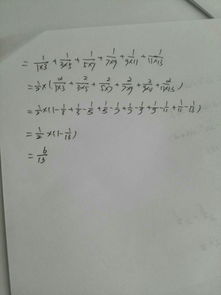 = 1/1×3 + 1/3×5 + 1/5×7 + 1/7×9 + 1/9×11 + 1/11×13
= 1/2 × (2/1×3 + 2/3×5 + 2/5×7 + 2/7×9 + 2/9×11 + 2/11×13)
= 1/2 × (1 - 1/3 + 1/3 - 1/5 + 1/5 - 1/7 + 1/7 - 1/9 + 1/9 - 1/11 + 1/11 - 1/13)
= 1/2 × (1 - 1/13)
= 6/13